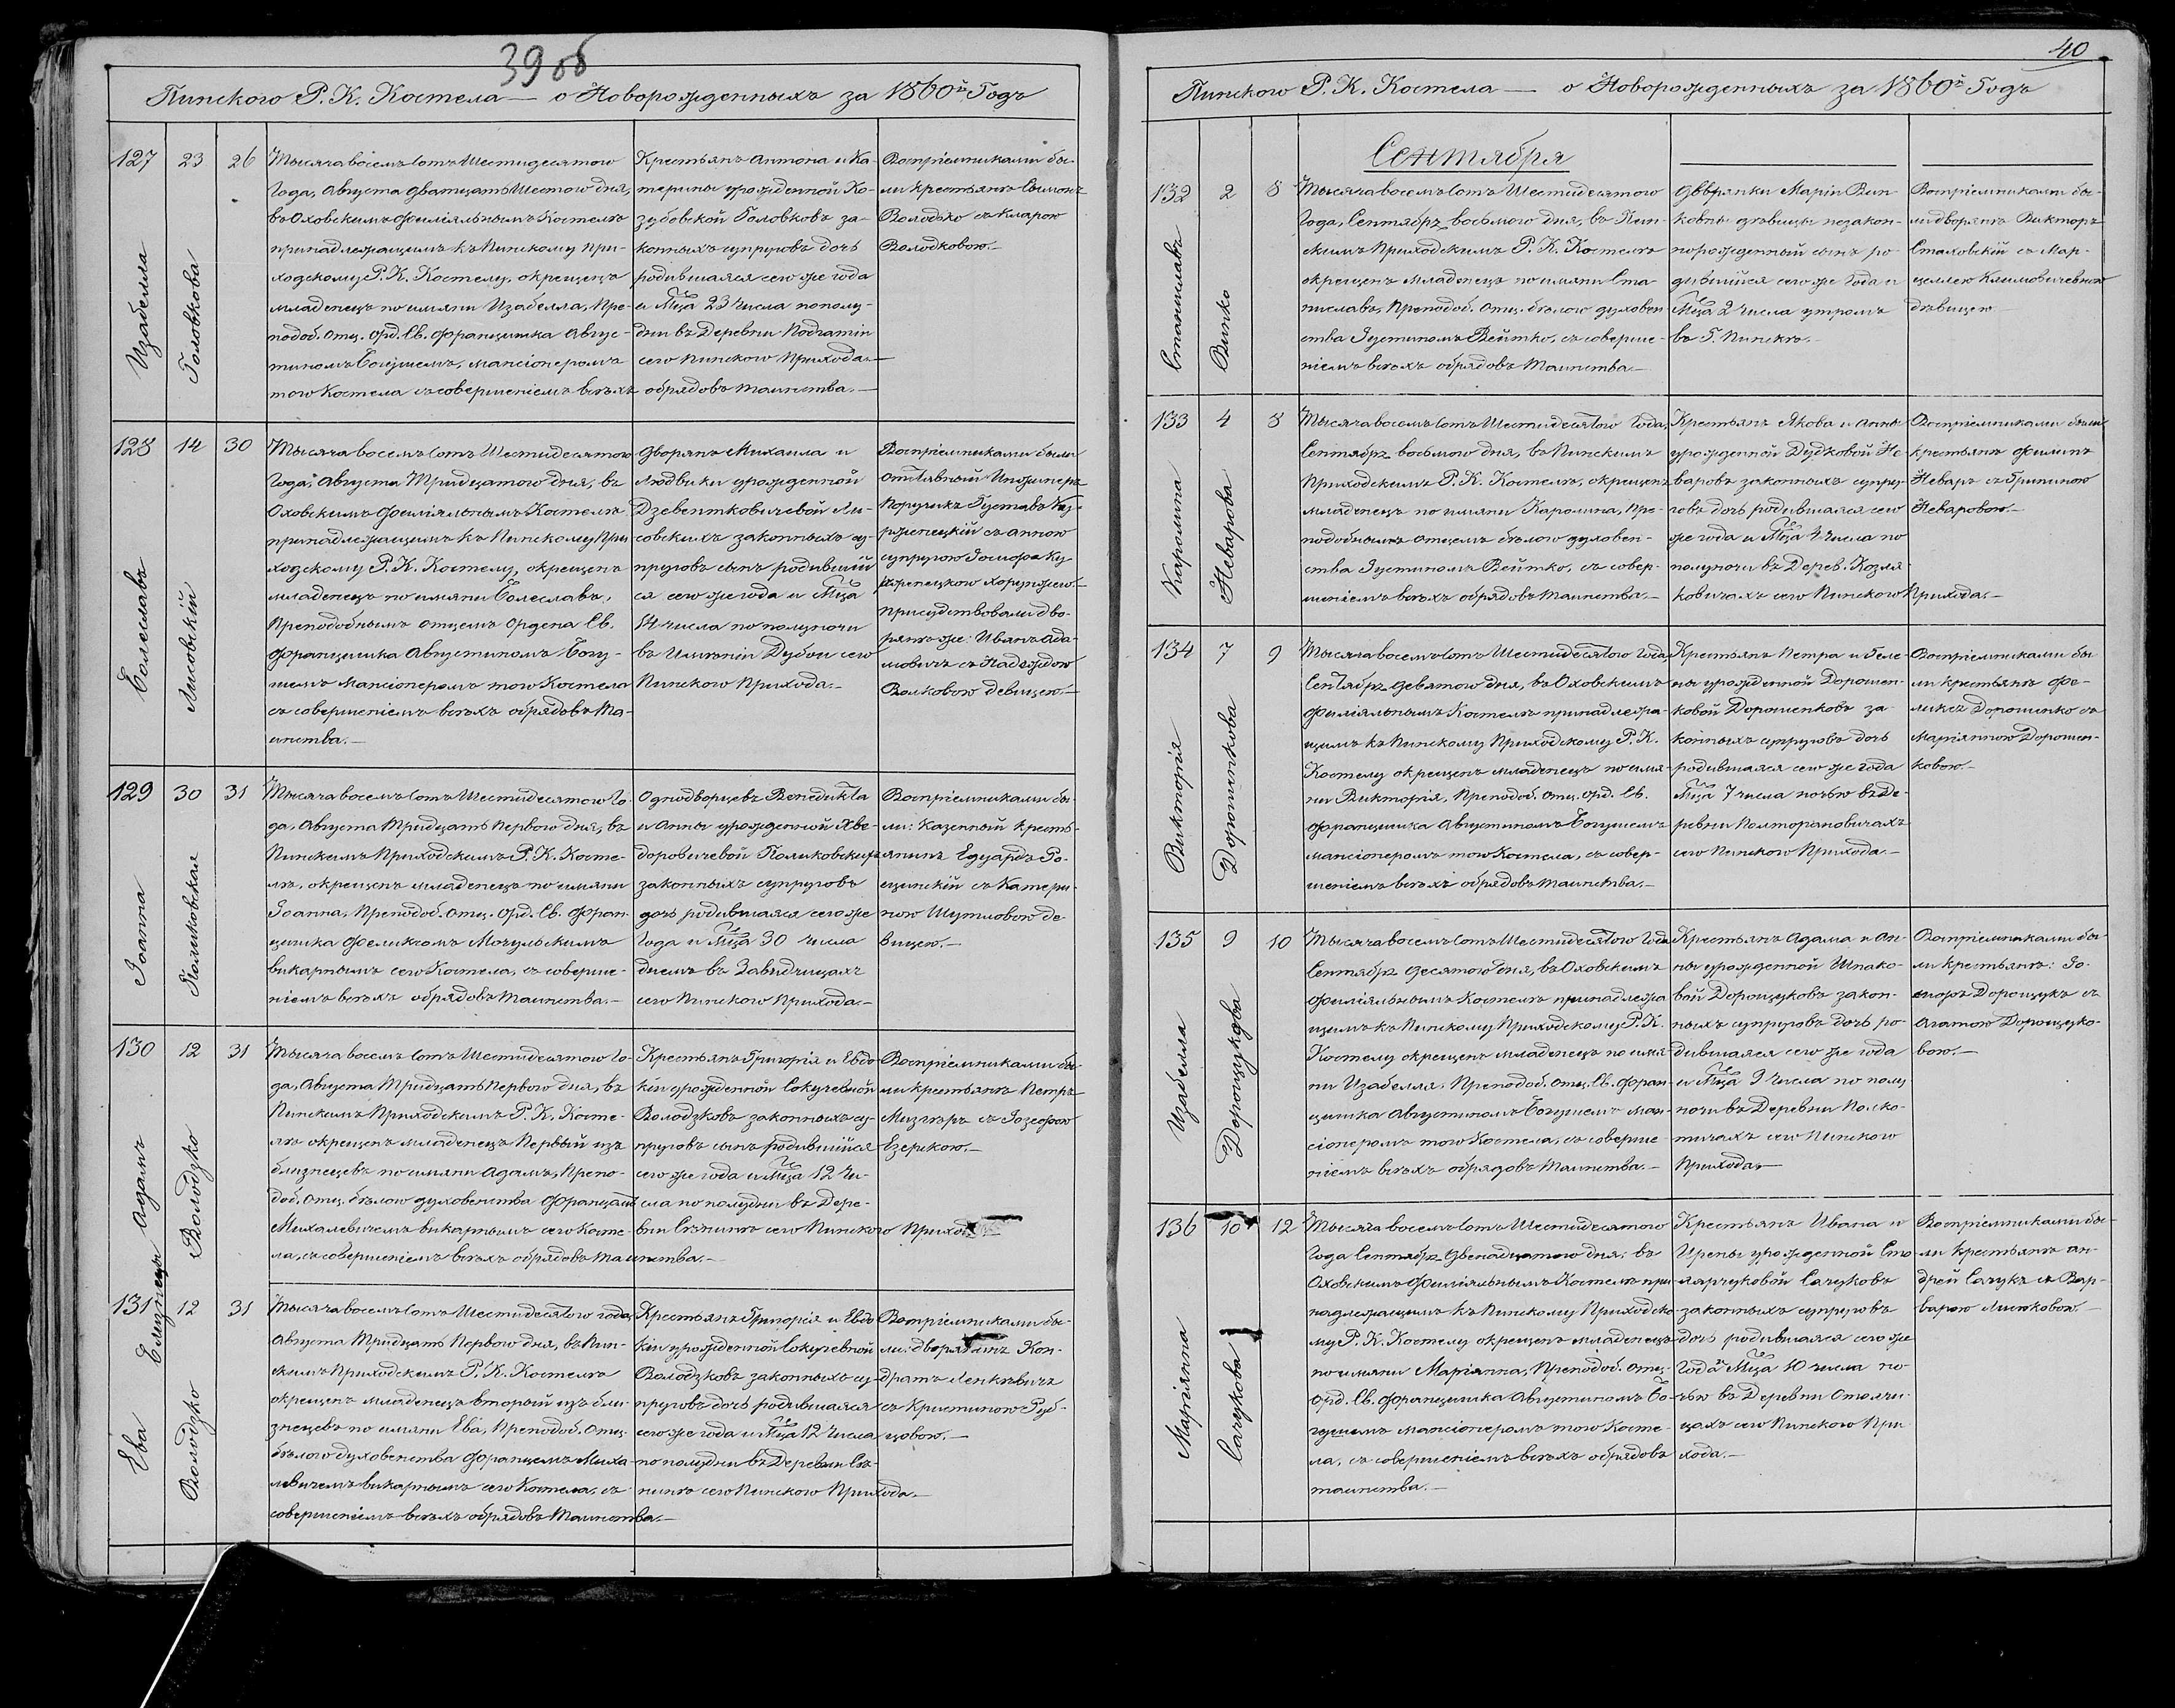 39 об
Пинского Р. К. Костела — о Новорожденныхъ за 1860й Годъ
127 23 26
Изабелла
Головкова
Тысяча восемъ сотъ Шестидесятого
Года, Августа дватцать Шестого дня,
въ Оховскимъ Филіяльнымъ Костелѣ
принадлежащимъ къ Пинскому При-
ходскому Р. К. Костелу, окрещенъ
младенецъ по имяни Изабелла, Пре-
подоб. Отц. Орд. Св. Францишка Авгус-
тиномъ Богушемъ, мансіонеромъ
того Костела съ совершеніемъ всѣхъ обрядовъ таинства.—
Крестьянъ Антона и Ка-
терины урожденной Ко-
зубовской Головковъ за-
конныхъ супруговъ дочь
родившаяся сего же года
и Мца 23 числа пополу-
дни въ Деревни
сего Пинского Прихода.—
Воспріемниками бы-
ли крестьянъ Сымонъ
Володько съ Кларою
Володковою.—
128 14 30
Болеславъ
Лисовскій
Тысяча восемъ сотъ Шестидесятого
Года, Августа Тридцатого дня, въ
Оховскимъ Филіяльнымъ Костелѣ
принадлежащимъ къ Пинскому При
ходскому Р. К. Костелу, окрещенъ
младенецъ по имяни Болеславъ,
Преподобнымъ Отцемъ Ордена Св.
Францишка Августиномъ Богу-
шемъ Мансіонеромъ того Костела
съ совершеніемъ всѣхъ обрядовъ Та-
инства.—
Дворянъ Михаила и
Людвики урожденной
Дзевентковичевой Ли-
совскихъ законныхъ су-
пруговъ сынъ родивший
ся сего же года и Мца
14 числа по полуночи
въ Имѣніи Дубои сего
Пинского Прихода.—
Воспріемниками были
отставный Инженеръ
Поручикъ Густавъ
съ Анною
супругою Іосифа Ку
Хорунжего.—
Присудствовали дво-
рянѣ же: Иванъ Ада-
мовичъ съ Надеждою
Волковою девицею.—
129 30 31
Іоанна
Поликовская
Тысяча восемъ сотъ Шестидесятого Го-
да, Августа Тридцать Первого дня, въ
Пинскимъ Приходскимъ Р. К. Косте-
лѣ, окрещенъ младенецъ по имяни
Іоанна, Преподоб. Отц. Орд. Св. Фран-
цишка Феликсомъ Могульскимъ
викарнымъ сего Костела, съ соверше-
ніемъ всѣхъ обрядовъ Таинства.—
Однодворцевъ Венедикта
и Анны урожденной Хве-
доровичевой Поликовскихъ
законныхъ супруговъ
дочь родившаяся сего же
Года и Мца 30 числа
днемъ въ Завидчицахъ
сего Пинского Прихода.—
Воспріемниками бы-
ли: Казенный кресть-
янинъ Едуардъ Ро-
съ Катери-
ною Шутиловою де-
вицею.—
130 12 31
Адамъ
Володзко
Близнецы
Тысяча восемъ сотъ Шестидесятого Го-
да, Августа Тридцать Первого дня, въ
Пинскимъ Приходскимъ Р. К. Косте-
лѣ окрещенъ младенецъ Первый изъ
близнецевъ по имяни Адамъ, Препо-
доб. Отц. бѣлого духовенства Францомъ
Михалевичемъ викарнымъ сего Косте-
ла, съ совершеніемъ всѣхъ обрядовъ Таинства.—
Крестьянъ Григорія и Евдо-
кіи урожденной Сокучевной
Володзковъ законныхъ су-
пруговъ сынъ родившійся
сего же года и Мца 12 чи-
сла по полудни въ Дере-
вни сего Пинского Прихода
Воспріемниками бы-
ли крестьянѣ Петръ
Мизгѣръ съ Іозефою
Езерскою.—
131 12 31
Ева
Володзко
Тысяча восемъ сотъ Шестидесятого года,
Августа Тридцать Первого дня, въ Пин-
скимъ Приходскимъ Р. К. Костелѣ
окрещенъ младенецъ вторый изъ бли-
знецевъ по имяни Ева, Преподоб. Отц.
бѣлого духовенства Францемъ Миха-
левичемъ викарнымъ сего Костела, съ
совершеніемъ всѣхъ обрядовъ Таинства.—
Крестьянъ Григорія и Евдо-
кіи урожденной Сокучевной
Володзковъ законныхъ су-
пруговъ дочь родившаяся
сего же года и Мца 12 числа
по полудни въ Деревни
сего Пинского Прихода.—
Воспріемниками бы-
ли: дворянинъ Кон-
дратъ Ленкѣвичъ
съ Кристиною Руб-
цовою.—
40
Пинского Р. К. Костела — о Новорожденныхъ за 1860й Годъ
Сентября
132 2 8
Станиславъ
Винко
Тысяча восемъ сотъ Шестидесятого
Года, Сентября восьмого дня, въ Пин-
скимъ Приходскимъ Р. К. Костелѣ
окрещенъ младенецъ по имяни Ста-
ниславъ, Преподоб. Отц. бѣлого духовен
ства Іустиномъ Войтко, съ соверше-
ніемъ всѣхъ обрядовъ Таинства.—
Дворянки Маріи Вин-
ковны дѣвицы незакон-
норожденный сынъ ро-
дившийся сего же Года и
Мца 2 числа утромъ
въ Г. Пинскѣ.—
Воспріемниками бы-
ли дворянѣ Викторъ
Стаховскій съ Мар-
целлею Климовичевною
дѣвицею
133 4 8
Каролина
Неварова
Тысяча восемъ сотъ Шестидесятого Года,
Сентября восьмого дня, въ Пинскимъ
Приходскимъ Р. К. Костелѣ, окрещенъ
младенецъ по имяни Каролина, Пре-
подобнымъ Отцемъ бѣлого духовен-
ства Іустиномъ Войтко, съ совер-
шеніемъ всѣхъ обрядовъ Таинства.—
Крестьянъ Якова и Анны
урожденной Дудковой Не-
варовъ законныхъ супру-
говъ дочь родившаяся сего
же года и Мца 4 числа по
полуночи въ Дерев. Козля
ковичахъ сего Пинского Прихода.—
Воспріемниками были
крестьянѣ Филипъ
Неваръ съ Грипиною
Неваровою.—
134 7 9
Викторія
Дорошенкова
Тысяча восемъ сотъ Шестидесятого Года,
Сентября девятого дня, въ Оховскимъ
Филіяльнымъ Костелѣ принадлежа-
щимъ къ Пинскому Приходскому Р. К.
Костелу окрещенъ младенецъ по имя-
ни Викторія, Преподоб. Отц. Орд. Св.
Францишка Августиномъ Богушемъ
мансіонеромъ того Костела, съ совер-
шеніемъ всѣхъ обрядовъ таинства.—
Крестьянъ Петра и Геле-
ны урожденной Дорошен-
ковой Дорошенковъ за-
конныхъ супруговъ дочь
родившаяся сего же года
Мца 7 числа ночью въ Де-
ревни Полторановичахъ
сего Пинского Прихода.—
Воспріемниками бы-
ли крестьянѣ Фе-
ликсъ Дорошенко съ
Маріянною Дорошен-
ковою.—
135 9 10
Изабелла
Дорощукова
Тысяча восемъ сотъ Шестидесятого Года
Сентября десятого дня, въ Оховскимъ
Филіяльнымъ Костелѣ принадлежа
щимъ къ Пинскому Приходскому Р. К.
Костелу окрещенъ младенецъ по имя-
ни Изабелля, Преподоб. Отц. Св. Фран-
цишка Августиномъ Богушемъ ман-
сіонеромъ того Костела, съ соверше-
ніемъ всѣхъ обрядовъ Таинства.—
Крестьянъ Адама и Ан-
ны урожденной Шпако-
вой Дорощуковъ закон-
ныхъ супруговъ дочь ро-
дившаяся сего же года
и Мца 9 числа по полу
ночи въ Деревни Полко-
тичахъ сего Пинского
Прихода.—
Воспріемниками бы-
ли крестьянѣ: Іо-
сифъ Дорощукъ съ
Агатою Дорощуко-
вою.—
136 10 12
Маріянна
Сачукова
Тысяча восемъ сотъ Шестидесятого
Года Сентября двенадцатого дня; въ
Оховскимъ Филіяльнымъ Костелѣ при
надлежащимъ къ Пинскому Приходско-
му Р. К. Костелу окрещенъ младенецъ
по имяни Маріянна, Преподоб. Отц.
Орд. Св. Францишка Августиномъ Бо-
гушемъ мансіонеромъ того Косте-
ла, съ совершеніемъ всѣхъ обрядовъ
таинства.—
Крестьянъ Ивана и
Ирены урожденной Сто
лярчуковой Сачуковъ
законныхъ супруговъ
дочь родившаяся сего же
Года и Мца 10 числа но-
чью въ Деревни Отолчи-
цахъ сего Пинского При
хода.—
Воспріемниками бы-
ли крестьянѣ Ан-
дрей Сачукъ съ Вар-
варою Лисковою.—